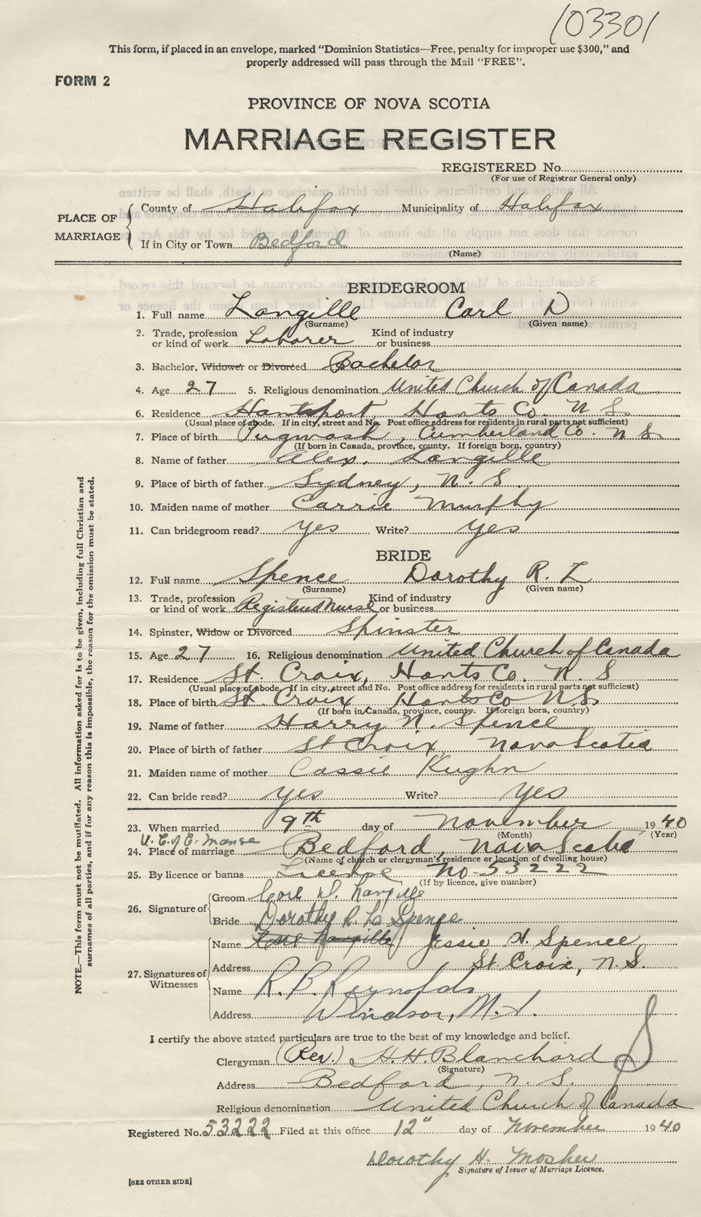 103301
This form, if placed in an envelope, marked "Dominion Statistics—Free, penalty for improper use $300," and
properly addressed will pass through the Mail "FREE".
FORM 2
PROVINCE OF NOVA SCOTIA
MARRIAGE REGISTER
REGISTERED No.
(For use of Registrar General only)
PLACE OF MARRIAGE
County of Halifax Municipality of Halifax
If in City or Town Bedford
(Name)
BRIDEGROOM
1. Full name Langille Carl D
(Surname) (Given name)
2. Trade, profession or kind of work Laborer Kind of industry or business
3. Bachelor, Widower or Divorced Bachelor
4. Age 27 5. Religious denomination United Church of Canada
6. Residence Hantsport Hants Co. N S.
(Usual place of abode. If in city, street and No. Post office address for residents in rural parts not sufficient)
7. Place of birth Pugwash, Cumberland Co. N S
(If born in Canada, province, county. If foreign born, country)
8. Name of father Alex. Langille
9. Place of birth of father Sydney, N. S.
10. Maiden name of mother Carrie Murphy
11. Can bridegroom read? yes Write? yes
BRIDE
12. Full name Spence Dorothy R. L
(Surname) (Given name)
13. Trade, profession or kind of work Registered nurse Kind of industry or business
14. Spinster, Widow or Divorced Spinster
15. Age 27 16. Religious denomination United Church of Canada
17. Residence St. Croix, Hants Co. N. S
(Usual place of abode. If in city, street and No. Post office address for residents in rural parts not sufficient)
18. Place of birth St. Croix Hants Co N S.
(If born in Canada, province, county. If foreign born, country)
19. Name of father Harry N. Spence
20. Place of birth of father St Croix, Nova Scotia
21. Maiden name of mother Cassie Kughn
22. Can bride read? yes Write? yes
23. When married 9th day of November 1940
(Month) (Year)
U. C. of C. Manse
24. Place of marriage Bedford, Nova Scotia
(Name of church or clergyman's residence or location of dwelling house)
25. By licence or banns License No 53222
(If by licence, give number)
26. Signature of
Groom Carl D. Langille
Bride Dorothy R. L. Spence
27. Signatures of Witnesses
Name Carl Langille Jessie H. Spence
Address St. Croix, N. S.
Name R. B. Reynolds
Address Windsor, N.S.
I certify the above stated particulars are true to the best of my knowledge and belief.
Clergyman (Rev.) H. H Blanchard
(Signature)
Address Bedford, N. S.
Religious denomination United Church of Canada
Registered No. 53222 Filed at this office 12" day of November 1940
Dorothy H. Mosher
Signature of Issuer of Marriage Licence.
[SEE OTHER SIDE]
NOTE.—This form must not be mutilated. All information asked for is to be given, including full Christian and
surnames of all parties, and if for any reason this is impossible, the reason for the omission must be stated.